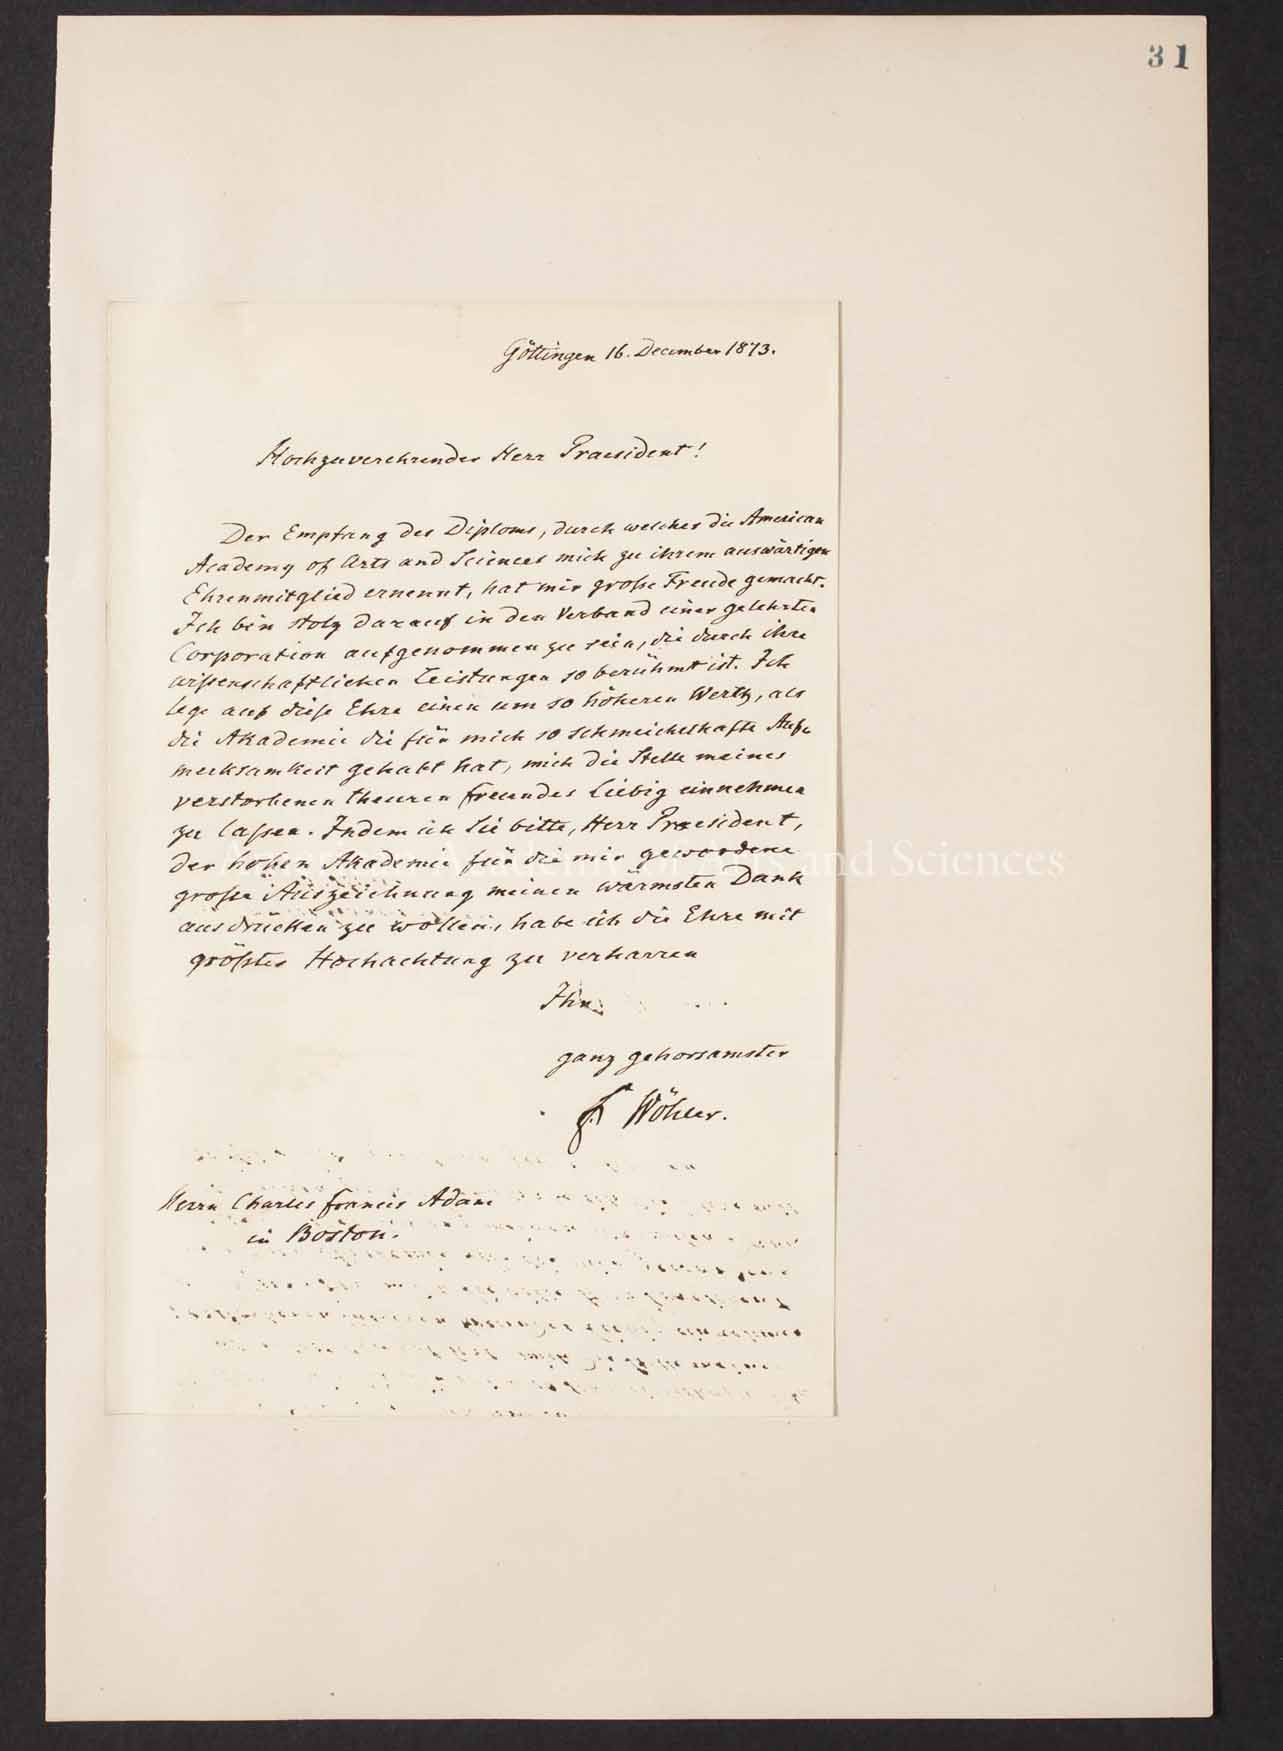 31
Göttingen 16. December 1873.
Hochzuverehrender Herr Praesident!
Der Empfang des Diploms, durch welches die American
Academy of Arts and Sciences mich zu ihrem auswärtigen
Ehrenmitglied ernennt, hat mir große Freude gemacht.
Ich bin stolz darauf in den Verband einer gelehrten
Corporation aufgenommen zu sein, die durch ihre
wissenschaftlichen Leistungen so berühmt ist. Ich
lege auf diese Ehre einen um so höheren Werth, als
die Akademie die für mich so schmeichelhafte Auf-
merksamkeit gehabt hat, mich die Stelle meines
verstorbenen theuren Freundes Liebig einnehmen
zu lassen. Indem ich Sie bitte, Herr Praesident,
der hohen Akademie für die mir gewordene
große Auszeichnung meinen wärmsten Dank
ausdrücken zu wollen, habe ich die Ehre mit
größter Hochachtung zu verharren
Ihr
ganz gehorsamster
F. Wöhler.
Herrn Charles Francis Adam
in Boston.
American Academy of Arts and Sciences